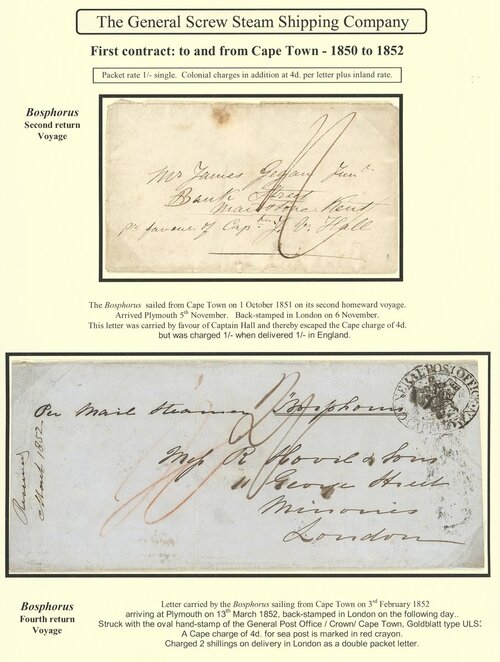 The General Screw Steam Shipping Company
First contract: to and from Cape Town - 1850 to 1852
Packet rate 1/- single. Colonial charges in addition at 4d. per letter plus inland rate.
Bosphorus
Second return
Voyage
Mr James
Bank Street
Maidstone Kent
per favour of Capn Hall
The Bosphorus sailed from Cape Town on 1 October 1851 on its second homeward voyage.
Arrived Plymouth 5th November. Back-stamped in London on 6 November.
This letter was carried by favour of Captain Hall and thereby escaped the Cape charge of 4d.
but was charged 1/- when delivered 1/- in England.
GENERAL POST OFFICE
Per Mail Steamer Bosphorus
March 1852
Mess R Hovil & Sons
11 George Street
Minories
London
Bosphorus
Fourth return
Voyage
Letter carried by the Bosphorus sailing from Cape Town on 3rd February 1852
arriving at Plymouth on 13th March 1852, back-stamped in London on the following day..
Struck with the oval hand-stamp of the General Post Office / Crown/ Cape Town, Goldblatt type ULS3
A Cape charge of 4d. for sea post is marked in red crayon.
Charged 2 shillings on delivery in London as a double packet letter.